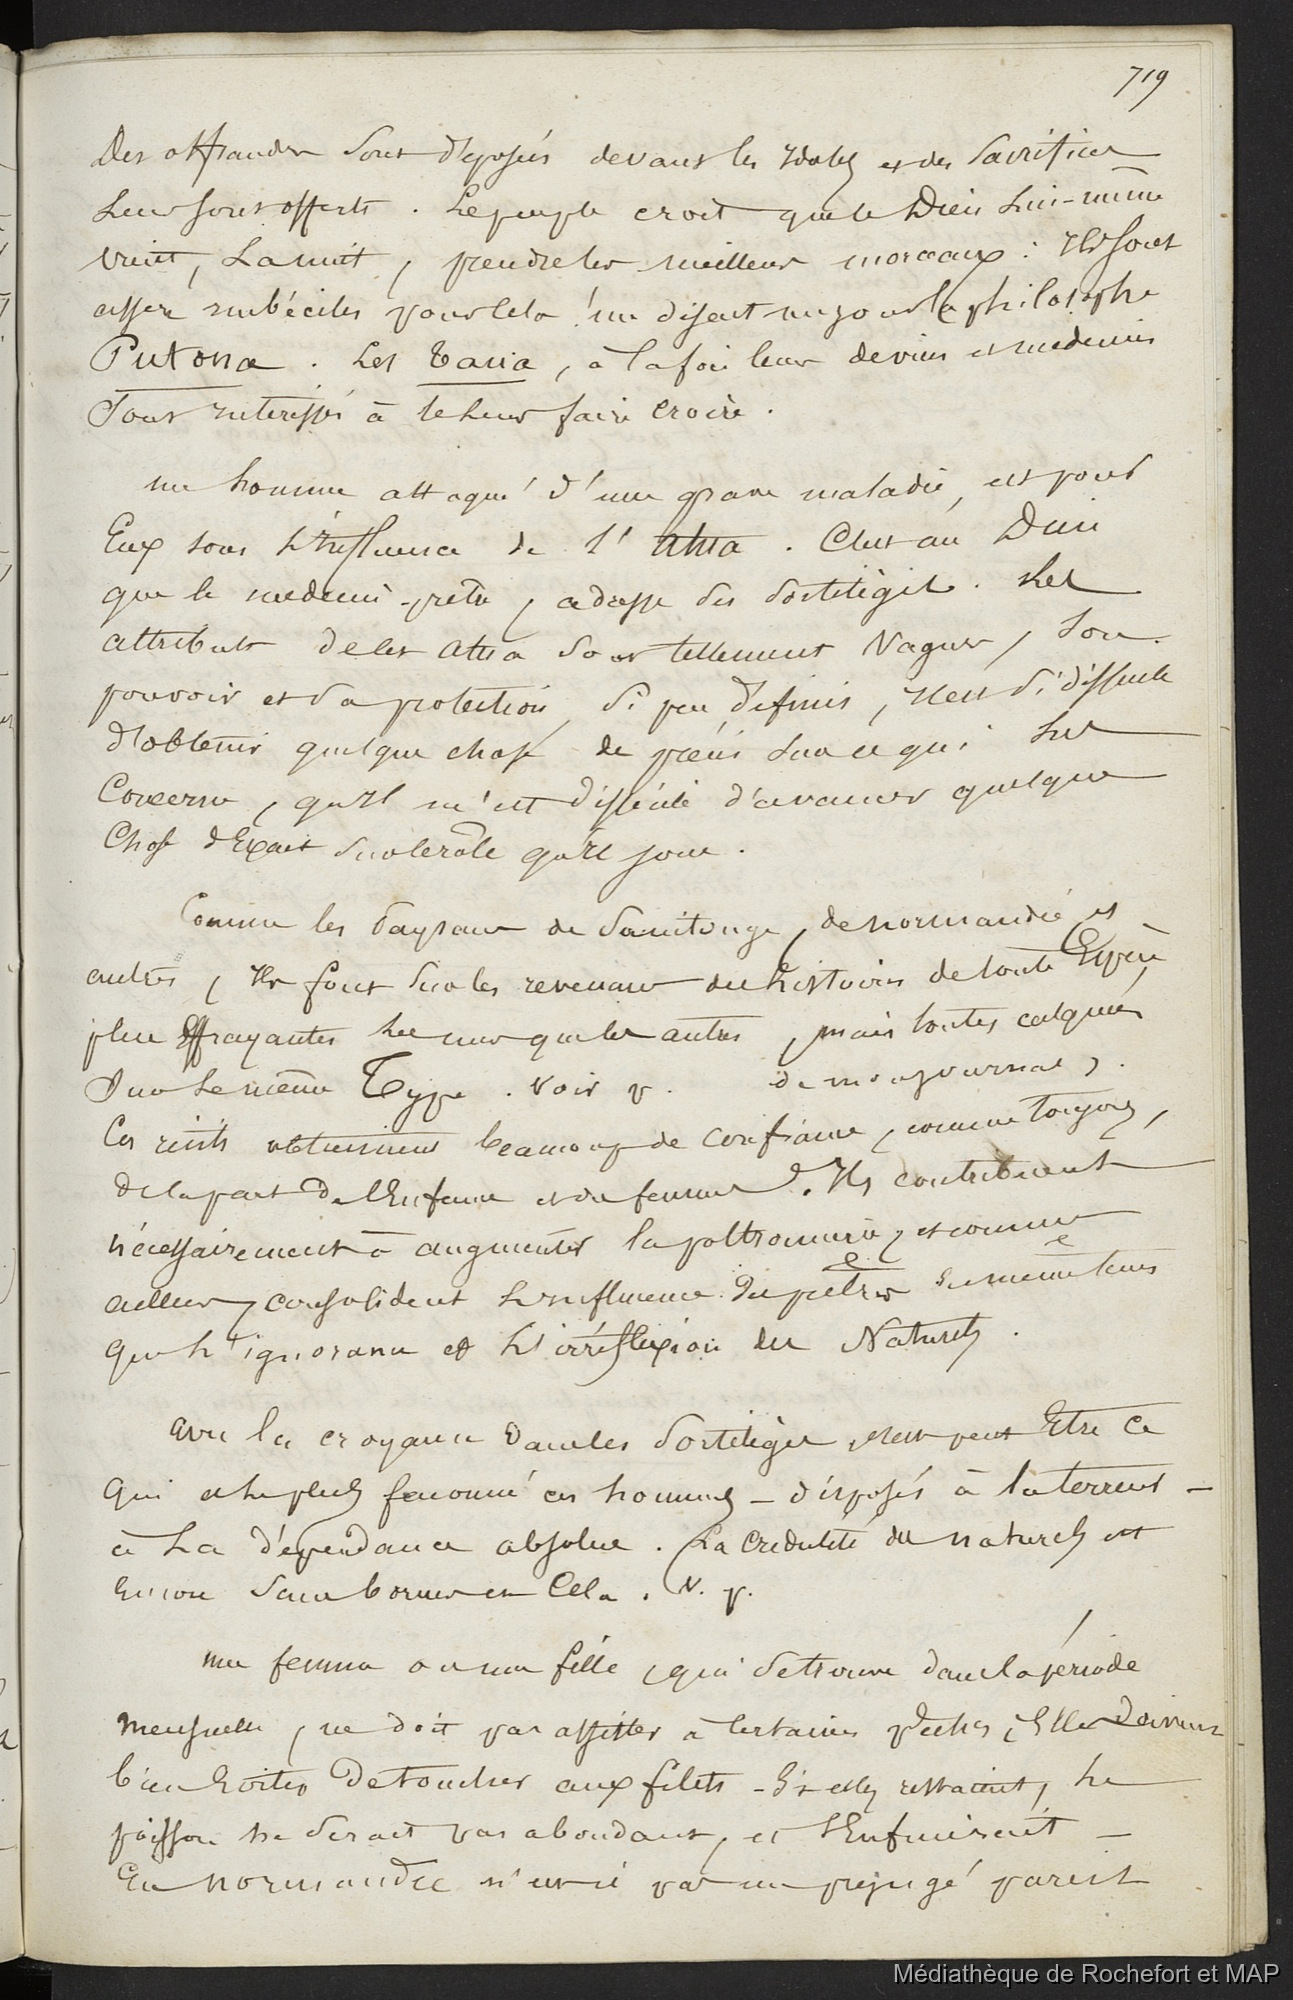 719
Des offrandes sont déposées devant les Idoles et des Sacrifices
Leur sont offerts. Le peuple croit que le Dieu lui-même
vient, La nuit, prendre les meilleurs morceaux : Ils sont
assez imbéciles pour cela ! me disait un jour le philosophe
Putona. Les Taua, à la fois leurs devins et médecins
Sont intéressés à le leur faire croire.
un homme attaqué d'une grave maladie, est pour
Eux sous L'influence de l'Atua. C'est au Dieu
que le médecin-prêtre, adresse ses sortilèges. Les
attributs de cet Atua sont tellement Vagues, Son
pouvoir et sa protection, si peu définis, Il est si difficile
d'obtenir quelque chose de précis sur ce qui Les
Concerne, qu'Il m'est difficile d'avancer quelque
Chose d'Exact sur le rôle qu'Il joue.
Comme les Paysans de Saintonge, de normandie et
autres, Ils font sur les revenans des histoires de toute Espèce
plus Effrayantes Les unes que les autres, mais toutes calquées
Sur Le même Type. Voir p. de mon journal).
Ces récits obtiennent beaucoup de confiance, comme toujours,
de la part De l'Enfance et des femmes. Ils contribuent
nécessairement à augmenter la poltronnerie, et comme
ailleurs, consolident L'influence Du prêtre En même tems
que L'ignorance et L'irréflexion des Naturels.
avec la croyance dans les Sortilèges, c'est peut Etre Ce
qui a Le plus façonné ces hommes - disposés à la terreur -
à La dépendance absolue. La crédulité des naturels est
Encore Sans bornes en Cela. V. p.
une femme ou une fille, qui se trouve dans la période
mensuelle, ne doit pas assister à Certaines pêches, Elles Doivent
bien Eviter De toucher aux filets - Si elles restaient, Le
poisson ne Serait pas abondant, et S'Enfuirait -
En normandie n'y a-t-il pas un préjugé pareil
Médiathèque de Rochefort et MAP